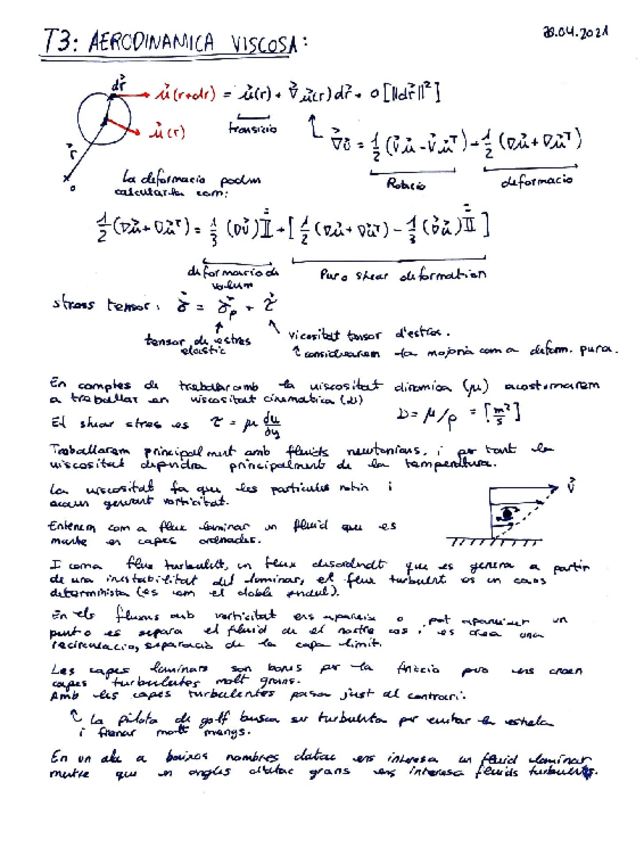 T3: AERODINAMICA VISCOSA:
28.04.2021
dr⃗ u⃗(r+dr) = u⃗(r) + ∇⃗u⃗(r)dr⃗ + O[||dr⃗||²]
u⃗(r) transició
r⃗
o
= 1/2 (∇⃗u⃗ - ∇⃗u⃗ᵀ) + 1/2 (∇u⃗ + ∇u⃗ᵀ)
Rotació deformacio
La deformacio podem
calcularla com:
1/2 (∇u⃗ + ∇u⃗ᵀ) = 1/3 (∇u⃗) I + [ 1/2 (∇u⃗ + ∇u⃗ᵀ) - 1/3 (∇⃗u⃗) I ]
deformacio de
volum
Pure shear deformation
stress tensor:
tensor de estres
elastic
viscositat tensor d'estres.
considerarem la majoria com a deform. pura.
En comptes de treballar amb la viscositat dinamica (μ) acostumarem
a treballar en viscositat cinematica (ν)
ν = μ/ρ = [m²/s]
El shear stres es τ = μ du/dy
Treballarem principalment amb fluids newtonians, i per tant la
viscositat dependra principalment de la temperatura.
La viscositat fa que les particules rotin i
acaun generant vorticitat.
V⃗
Entenem com a flux laminar un fluid que es
mante en capes ordenades.
I coma flux turbulent, un flux desordnadt que es genera a partir
de una inestabilitat del laminar, el flux turbulent es un caos
determinista (es com el doble pendul).
En els fluxos amb vorticitat ens apareix o pot apareixer un
punt o es separa el fluid de el nostre cos i es crea una
recirculacio, separacio de la capa limit.
Les capes laminars son bones per la friccio pero ens creen
capes turbulentes molt grans.
Amb les capes turbulentes passa just al contrari:
La pilota de golf busca ser turbulenta per evitar la estela
i frenar molt menys.
En un ala a baixos nombres datac ens interesa un fluid laminar
mentre que en angles datac grans ens interesa fluids turbulents.